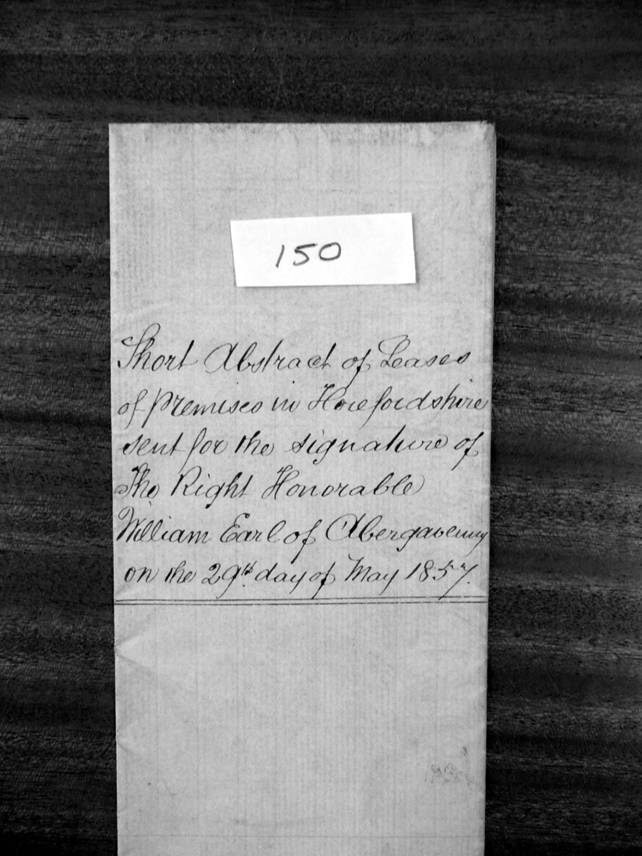 150
Short Abstract of Leases
of premises in Herefordshire
sent for the signature of
The Right Honorable
William Earl of Abergavenny
on the 29th day of May 1857.